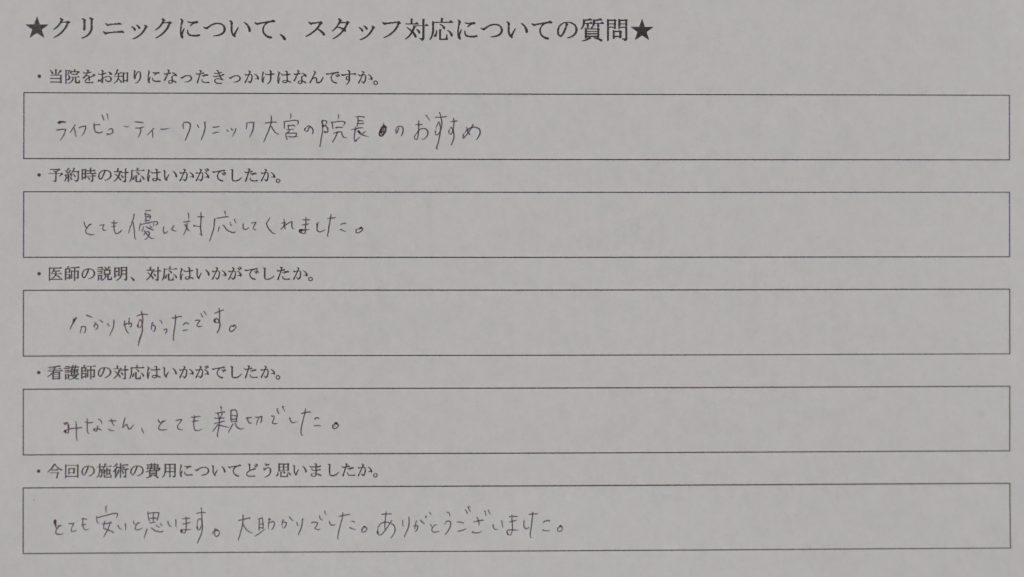 ★クリニックについて、スタッフ対応についての質問★
・当院をお知りになったきっかけはなんですか。
ライフビューティークリニック大宮の院長のおすすめ
・予約時の対応はいかがでしたか。
とても優しく対応してくれました。
・医師の説明、対応はいかがでしたか。
分かりやすかったです。
・看護師の対応はいかがでしたか。
みなさん、とても親切でした。
・今回の施術の費用についてどう思いましたか。
とても安いと思います。大助かりでした。ありがとうございました。